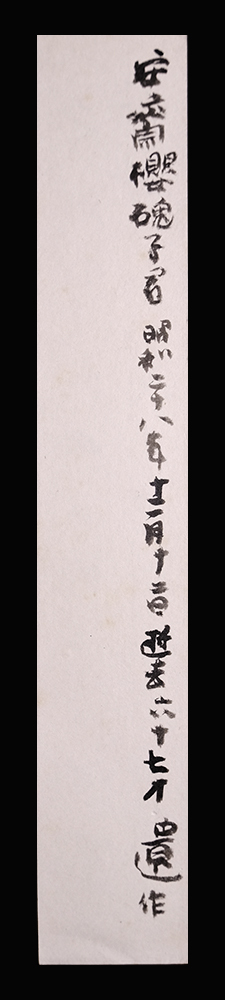 安齋櫻磈子君 昭和二十八年十一月十二日逝去六十七才 遺作